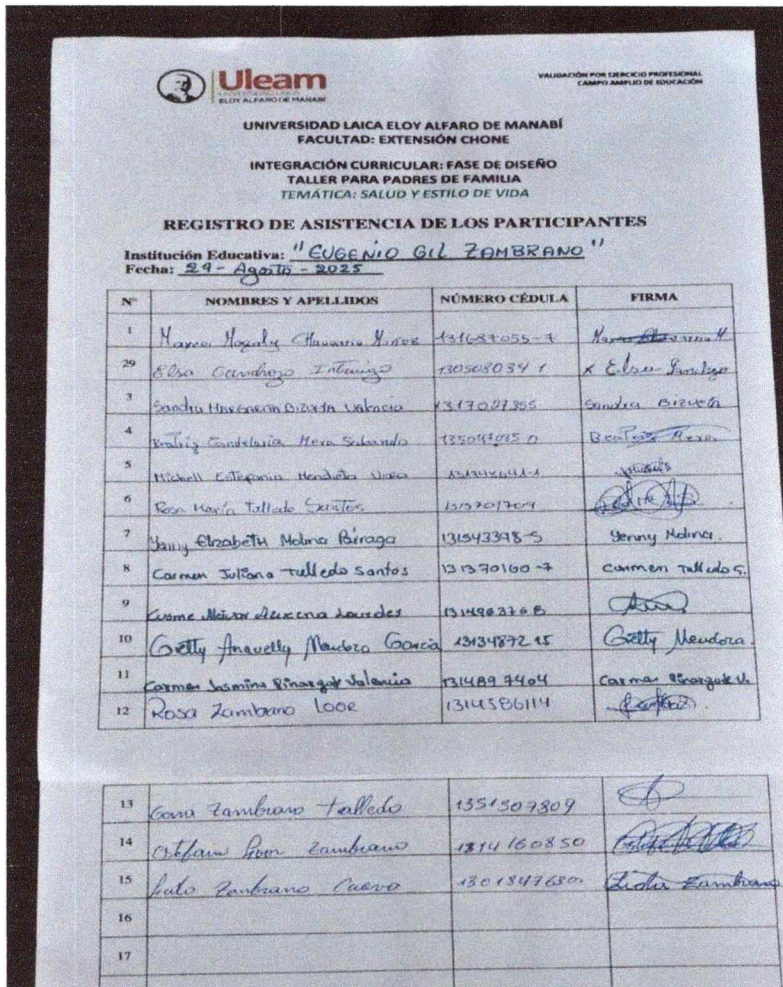 Uleam
UNIVERSIDAD LAICA
ELOY ALFARO DE MANABÍ
VALIDACIÓN POR EJERCICIO PROFESIONAL
CAMPO AMPLIO DE EDUCACIÓN
UNIVERSIDAD LAICA ELOY ALFARO DE MANABÍ
FACULTAD: EXTENSIÓN CHONE
INTEGRACIÓN CURRICULAR: FASE DE DISEÑO
TALLER PARA PADRES DE FAMILIA
TEMÁTICA: SALUD Y ESTILO DE VIDA
REGISTRO DE ASISTENCIA DE LOS PARTICIPANTES
Institución Educativa: "EUGENIO GIL ZAMBRANO"
Fecha: 29 - Agosto - 2025
N° NOMBRES Y APELLIDOS NÚMERO CÉDULA FIRMA
1 131687055-7
29 Elsa 130508034 1 x Elsa
3 Sandra Margarita Valencia 1317027355 Sandra
4 Candelaria Mera Beatriz Mera
5 Michell Estefania
6 Rosa María Talledo Santos 1313701709
7 Yenny Elizabeth Molina Párraga 131543398-5 Yenny Molina.
8 Carmen Juliana Talledo Santos 131370160-7 Carmen Talledo S.
9 Lourdes
10 Getty Mendoza García 1313487215 Getty Mendoza.
11 Carmen Jasmina Pinargote Valencia 1314897404 Carmen Pinargote V.
12 Rosa Zambrano Loor 1314586114
13 Zambrano Talledo 1351507809
14 Zambrano 1314160850
15 Zambrano Zambrano
16
17